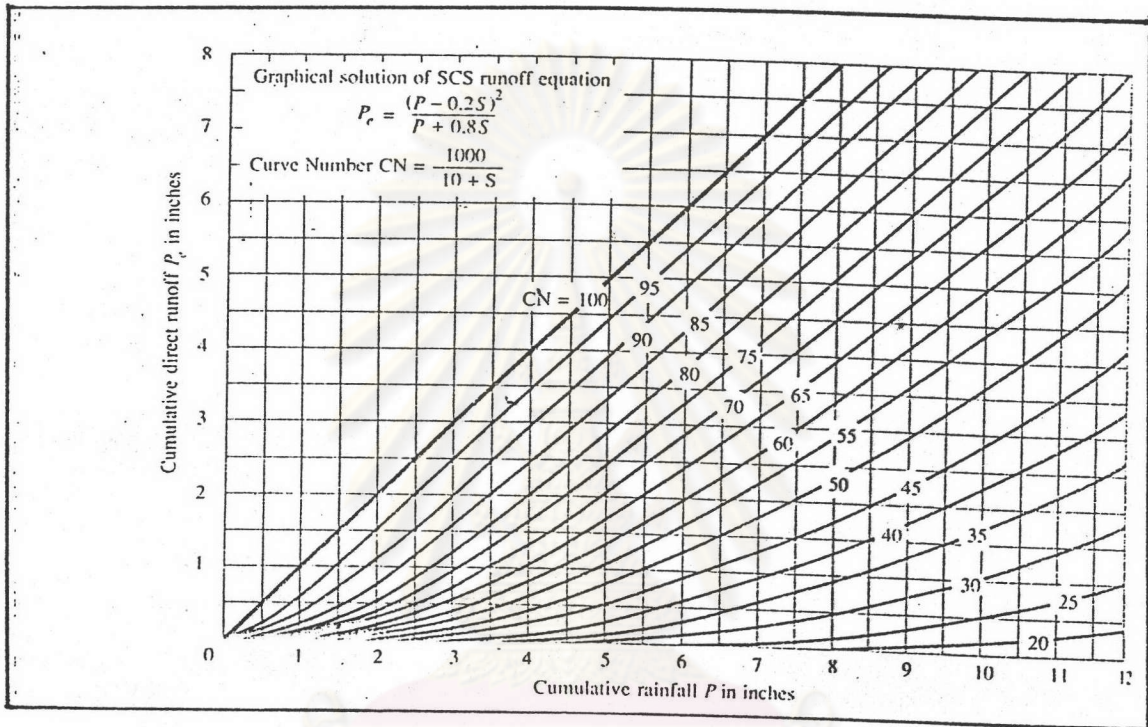 8
Graphical solution of SCS runoff equation
P_e = (P − 0.2S)^2 / P + 0.8S
Curve Number CN = 1000 / 10 + S
7
6
5
4
3
2
1
Cumulative direct runoff P_e in inches
CN = 100
95
90
85
80
75
70
65
60
55
50
45
40
35
30
25
20
0 1 2 3 4 5 6 7 8 9 10 11
Cumulative rainfall P in inches